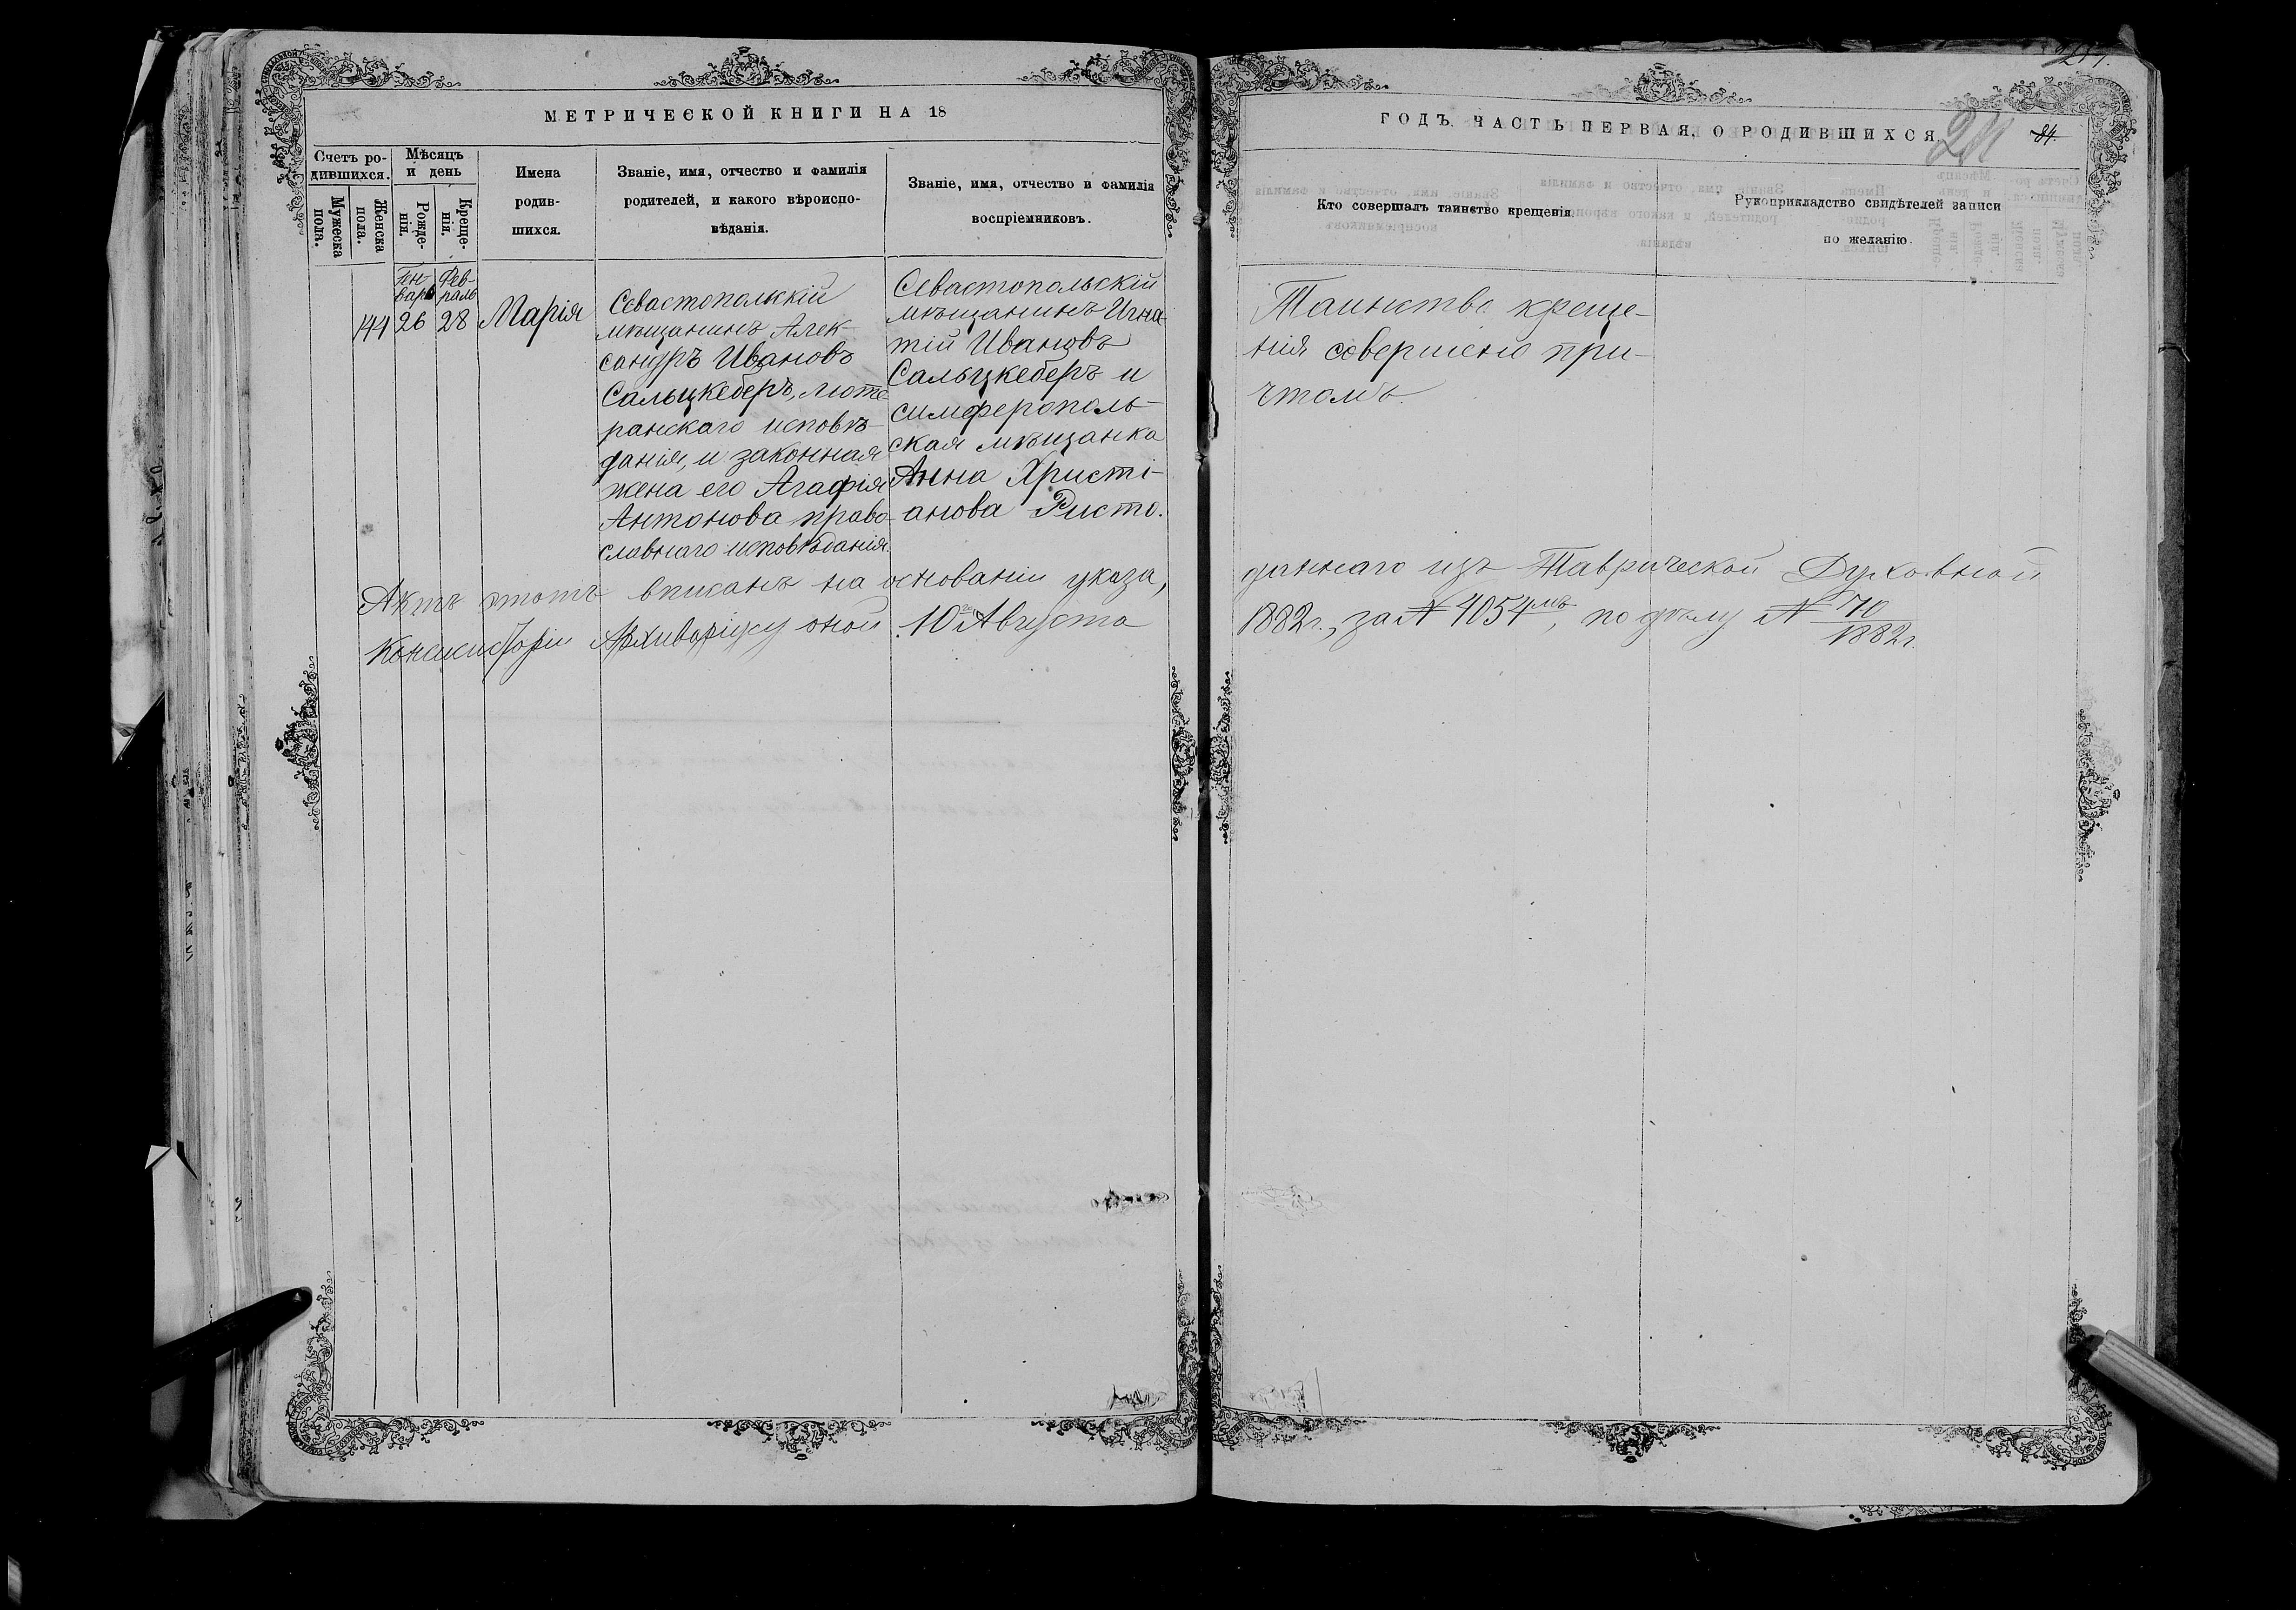 МЕТРИЧЕСКОЙ КНИГИ НА 18
Счетъ ро-
дившихся.
Мужеска
пола.
Женска
пола.
Мѣсяцъ
и день
Рожде-
нія.
Креще-
нія.
Имена
родив-
шихся.
Званіе, имя, отчество и фамилія
родителей, и какого вѣроиспо-
вѣданія.
Званіе, имя, отчество и фамилія
воспріемниковъ.
Ген-
варь
26
Фев-
раль
28
144
Марія
Севастопольскій
мѣщанинъ Алек-
сандръ Ивановъ
Сальцкеберъ, люте-
ранскаго исповѣ-
данія, и законная
жена его Агафія
Антонова право-
славнаго исповѣданія.
Севастопольскій
мѣщанинъ Игна-
тій Ивановъ
Сальцкеберъ и
симферополь-
ская мѣщанка
Анна Христі-
анова Ристо.
Актъ этотъ вписанъ на основаніи указа,
Консисторіи Архиваріусу оной 10го Августа
ГОДЪ. ЧАСТЬ ПЕРВАЯ, О РОДИВШИХСЯ
84.
Кто совершалъ таинство крещенія.
Рукоприкладство свидѣтелей записи
по желанію.
Таинство креще-
нія совершено при-
чтомъ.
даннаго изъ Таврической Духовной
1882г., за № 4054мъ, по дѣлу № 70
1882г.